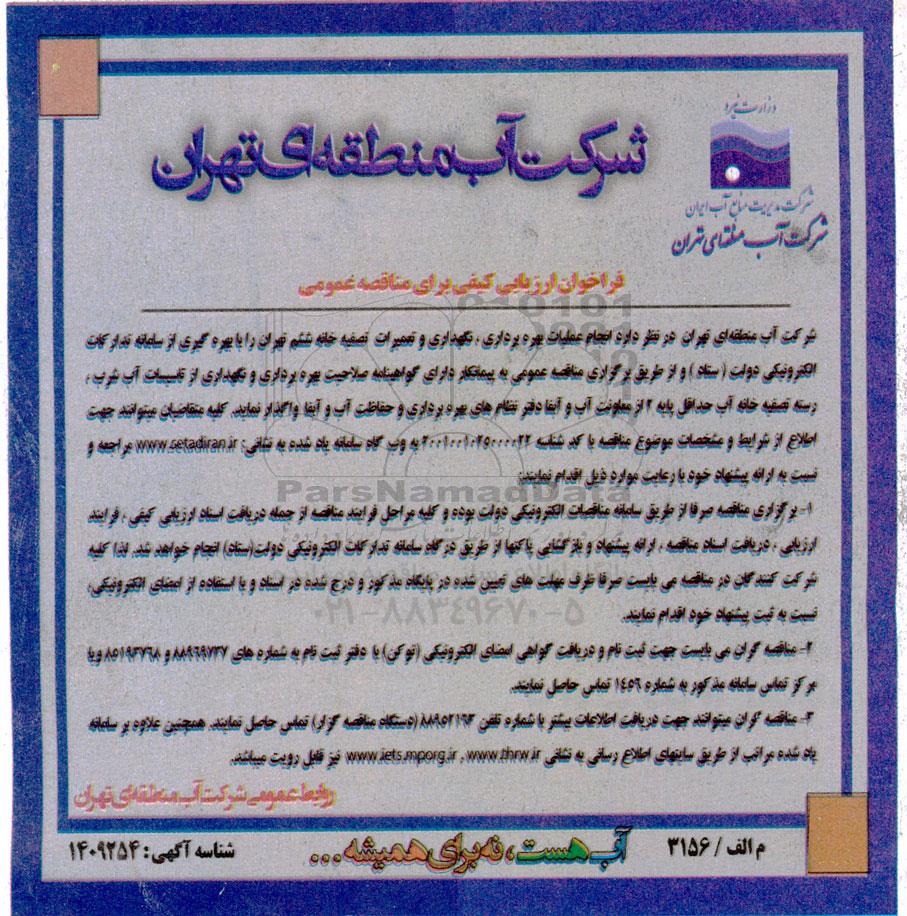 وزارت نیرو
شرکت مدیریت منابع آب ایران
شرکت آب منطقه‌ای تهران
شرکت آب منطقه‌ای تهران
فراخوان ارزیابی کیفی برای مناقصه عمومی
شرکت آب منطقه‌ای تهران در نظر دارد انجام عملیات بهره برداری ، نگهداری و تعمیرات تصفیه خانه ششم تهران را با بهره گیری از سامانه تدارکات
الکترونیکی دولت ( ستاد ) و از طریق برگزاری مناقصه عمومی به پیمانکار دارای گواهینامه صلاحیت بهره برداری و نگهداری از تاسیسات آب شرب ،
رسته تصفیه خانه آب حداقل پایه ۲ از معاونت آب و آبفا دفتر نظام های بهره برداری و حفاظت آب و آبفا واگذار نماید. کلیه متقاضیان میتوانند جهت
اطلاع از شرایط و مشخصات موضوع مناقصه با کد شناسه ۲۰۰۱۰۰۱۰۲۵۰۰۰۰۲۲ به وب گاه سامانه یاد شده به نشانی: www.setadiran.ir مراجعه و
نسبت به ارائه پیشنهاد خود با رعایت موارد ذیل اقدام نمایند:
۱- برگزاری مناقصه صرفا از طریق سامانه مناقصات الکترونیکی دولت بوده و کلیه مراحل فرایند مناقصه از جمله دریافت اسناد ارزیابی کیفی ، فرایند
ارزیابی ، دریافت اسناد مناقصه ، ارائه پیشنهاد و بازگشایی پاکتها از طریق درگاه سامانه تدارکات الکترونیکی دولت(ستاد) انجام خواهد شد. لذا کلیه
شرکت کنندگان در مناقصه می بایست صرفا ظرف مهلت های تعیین شده در پایگاه مذکور و درج شده در اسناد و با استفاده از امضای الکترونیکی،
نسبت به ثبت پیشنهاد خود اقدام نمایند.
۲- مناقصه گران می بایست جهت ثبت نام و دریافت گواهی امضای الکترونیکی (توکن) با دفتر ثبت نام به شماره های ۸۸۹۶۹۷۳۷ و ۸۵۱۹۳۷۶۸ ویا
مرکز تماس سامانه مذکور به شماره ۱۴۵۶ تماس حاصل نمایند.
۳- مناقصه گران میتوانند جهت دریافت اطلاعات بیشتر با شماره تلفن ۸۸۹۵۲۱۹۴ (دستگاه مناقصه گزار) تماس حاصل نمایند. همچنین علاوه بر سامانه
یاد شده مراتب از طریق سایتهای اطلاع رسانی به نشانی www.thrw.ir , www.iets.mporg.ir نیز قابل رویت میباشد.
روابط عمومی شرکت آب منطقه‌ای تهران
م الف / ۳۱۵۶
آب هست ، نه برای همیشه ...
شناسه آگهی : ۱۴۰۹۲۵۴
ParsNamadData
۰۲۱-۸۸۳۴۹۶۷۰-۵